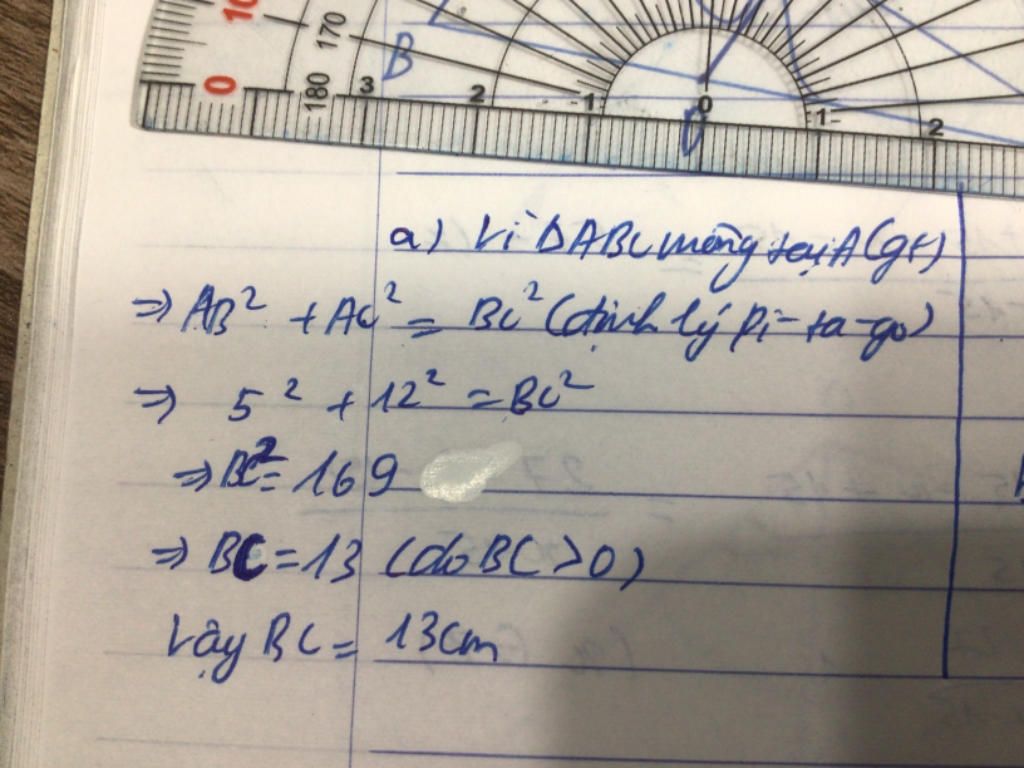 10
170
B
0
180 3 2 1 0 1 2
a) Vì ΔABC vuông tại A (gt)
=> AB² + AC² = BC² (định lý Pi-ta-go)
=> 5² + 12² = BC²
=> BC² = 169
=> BC = 13 (do BC > 0)
Vậy BC = 13cm